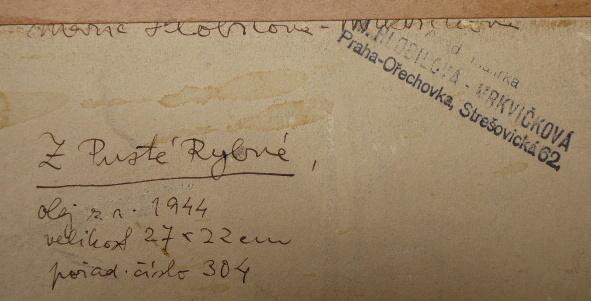 Marie Hlobilová - Mrkvičková
M. HLOBILOVÁ - MRKVIČKOVÁ
Praha-Ořechovka, Střešovická 62.
Z Pusté Rybné,
olej z r. 1944
velikost 27 x 22 cm
pořad. číslo 304